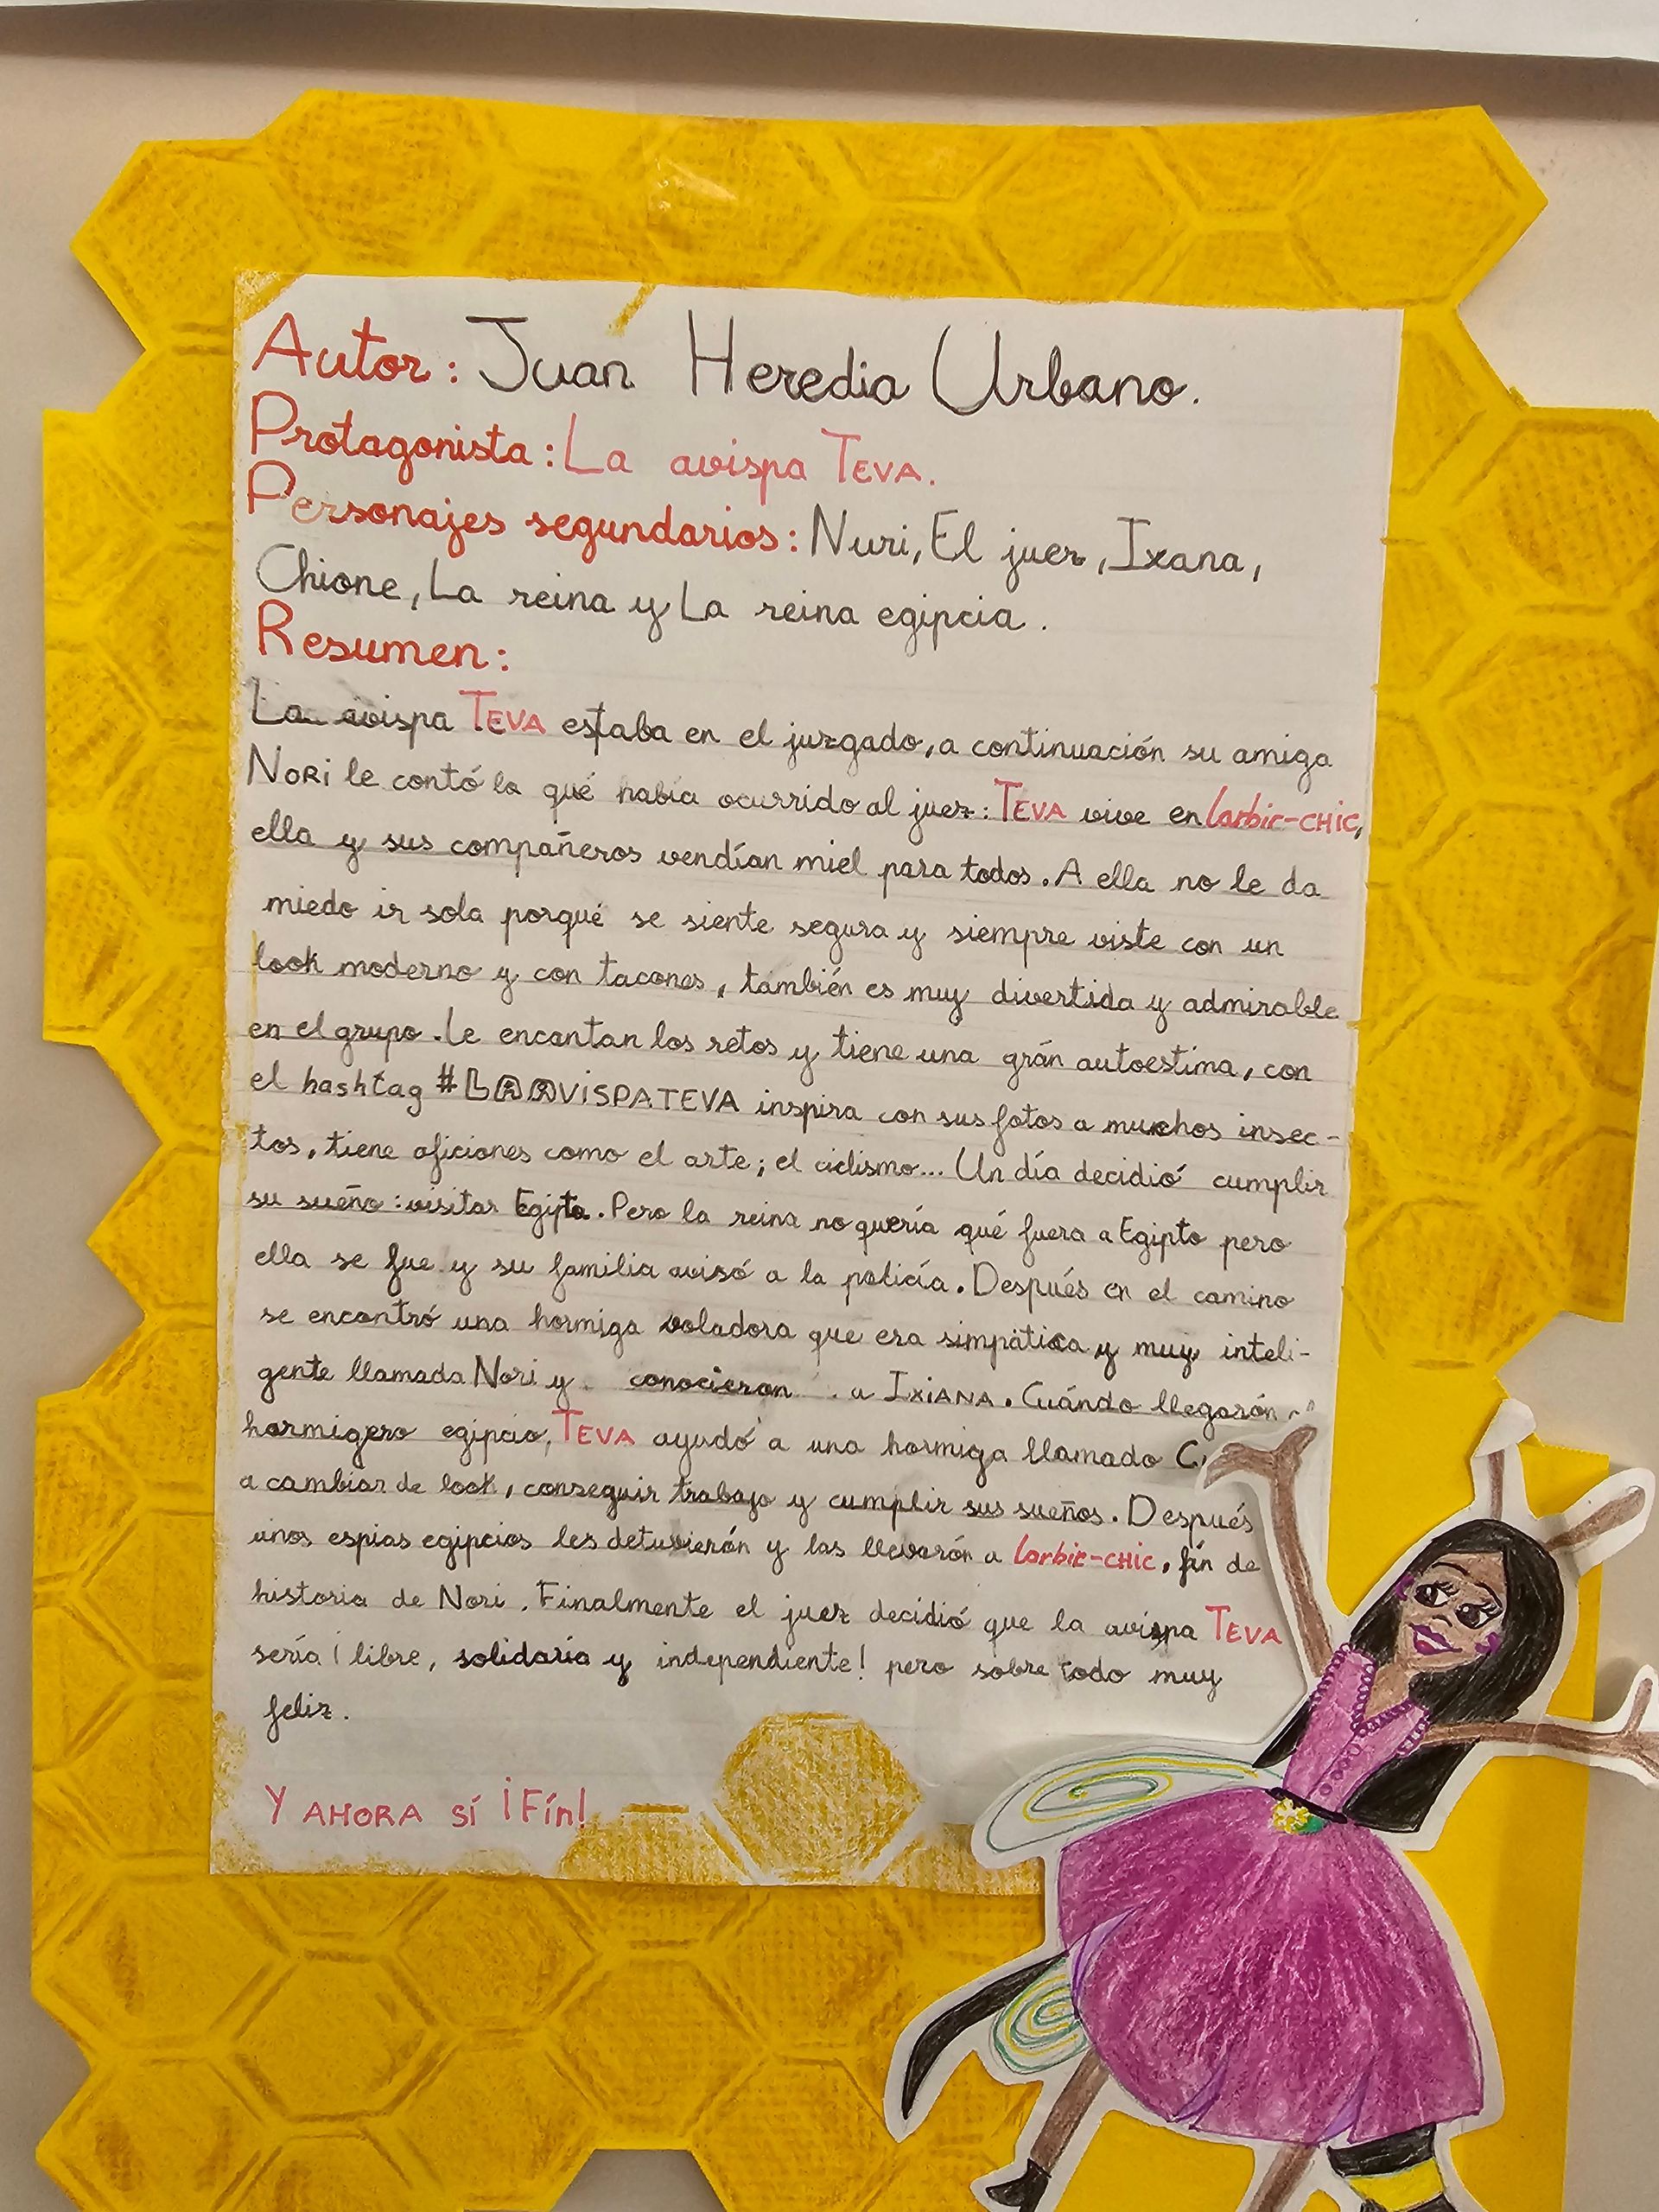 Autor: Juan Heredia Urbano.
Protagonista: La avispa TEVA.
Personajes segundarios: Nuri, El juez, Ixana,
Chione, La reina y La reina egipcia.
Resumen:
La avispa TEVA estaba en el juzgado, a continuación su amiga
NORi le contó lo qué había ocurrido al juez: TEVA vive en
ella y sus compañeros vendían miel para todos. A ella no le da
miedo ir sola porqué se siente segura y siempre viste con un
look moderno y con tacones, también es muy divertida y admirable
en el grupo. Le encantan los retos y tiene una grán autoestima, con
el hashtag #LAAViSPATEVA inspira con sus fotos a muchos insec-
tos, tiene aficiones como el arte; el ciclismo... Un día decidió cumplir
su sueño: visitar Egipto. Pero la reina no quería qué fuera a Egipto pero
ella se fue y su familia avisó a la policía. Después en el camino
se encontró una hormiga voladora que era simpática y muy inteli-
gente llamada Nori y conocieron a IXiANA. Cuándo llegarón
hormigero egipcio, TEVA ayudó a una hormiga llamado
a cambiar de look, conseguir trabajo y cumplir sus sueños. Después
unos espias egipcios les detuvierón y las llevarón a Lorbic-CHiC, fín de
historia de Nori. Finalmente el juez decidió que la avispa TEVA
sería ¡libre, solidaria y independiente! pero sobre todo muy
feliz.
Y AHORA SÍ ¡Fín!